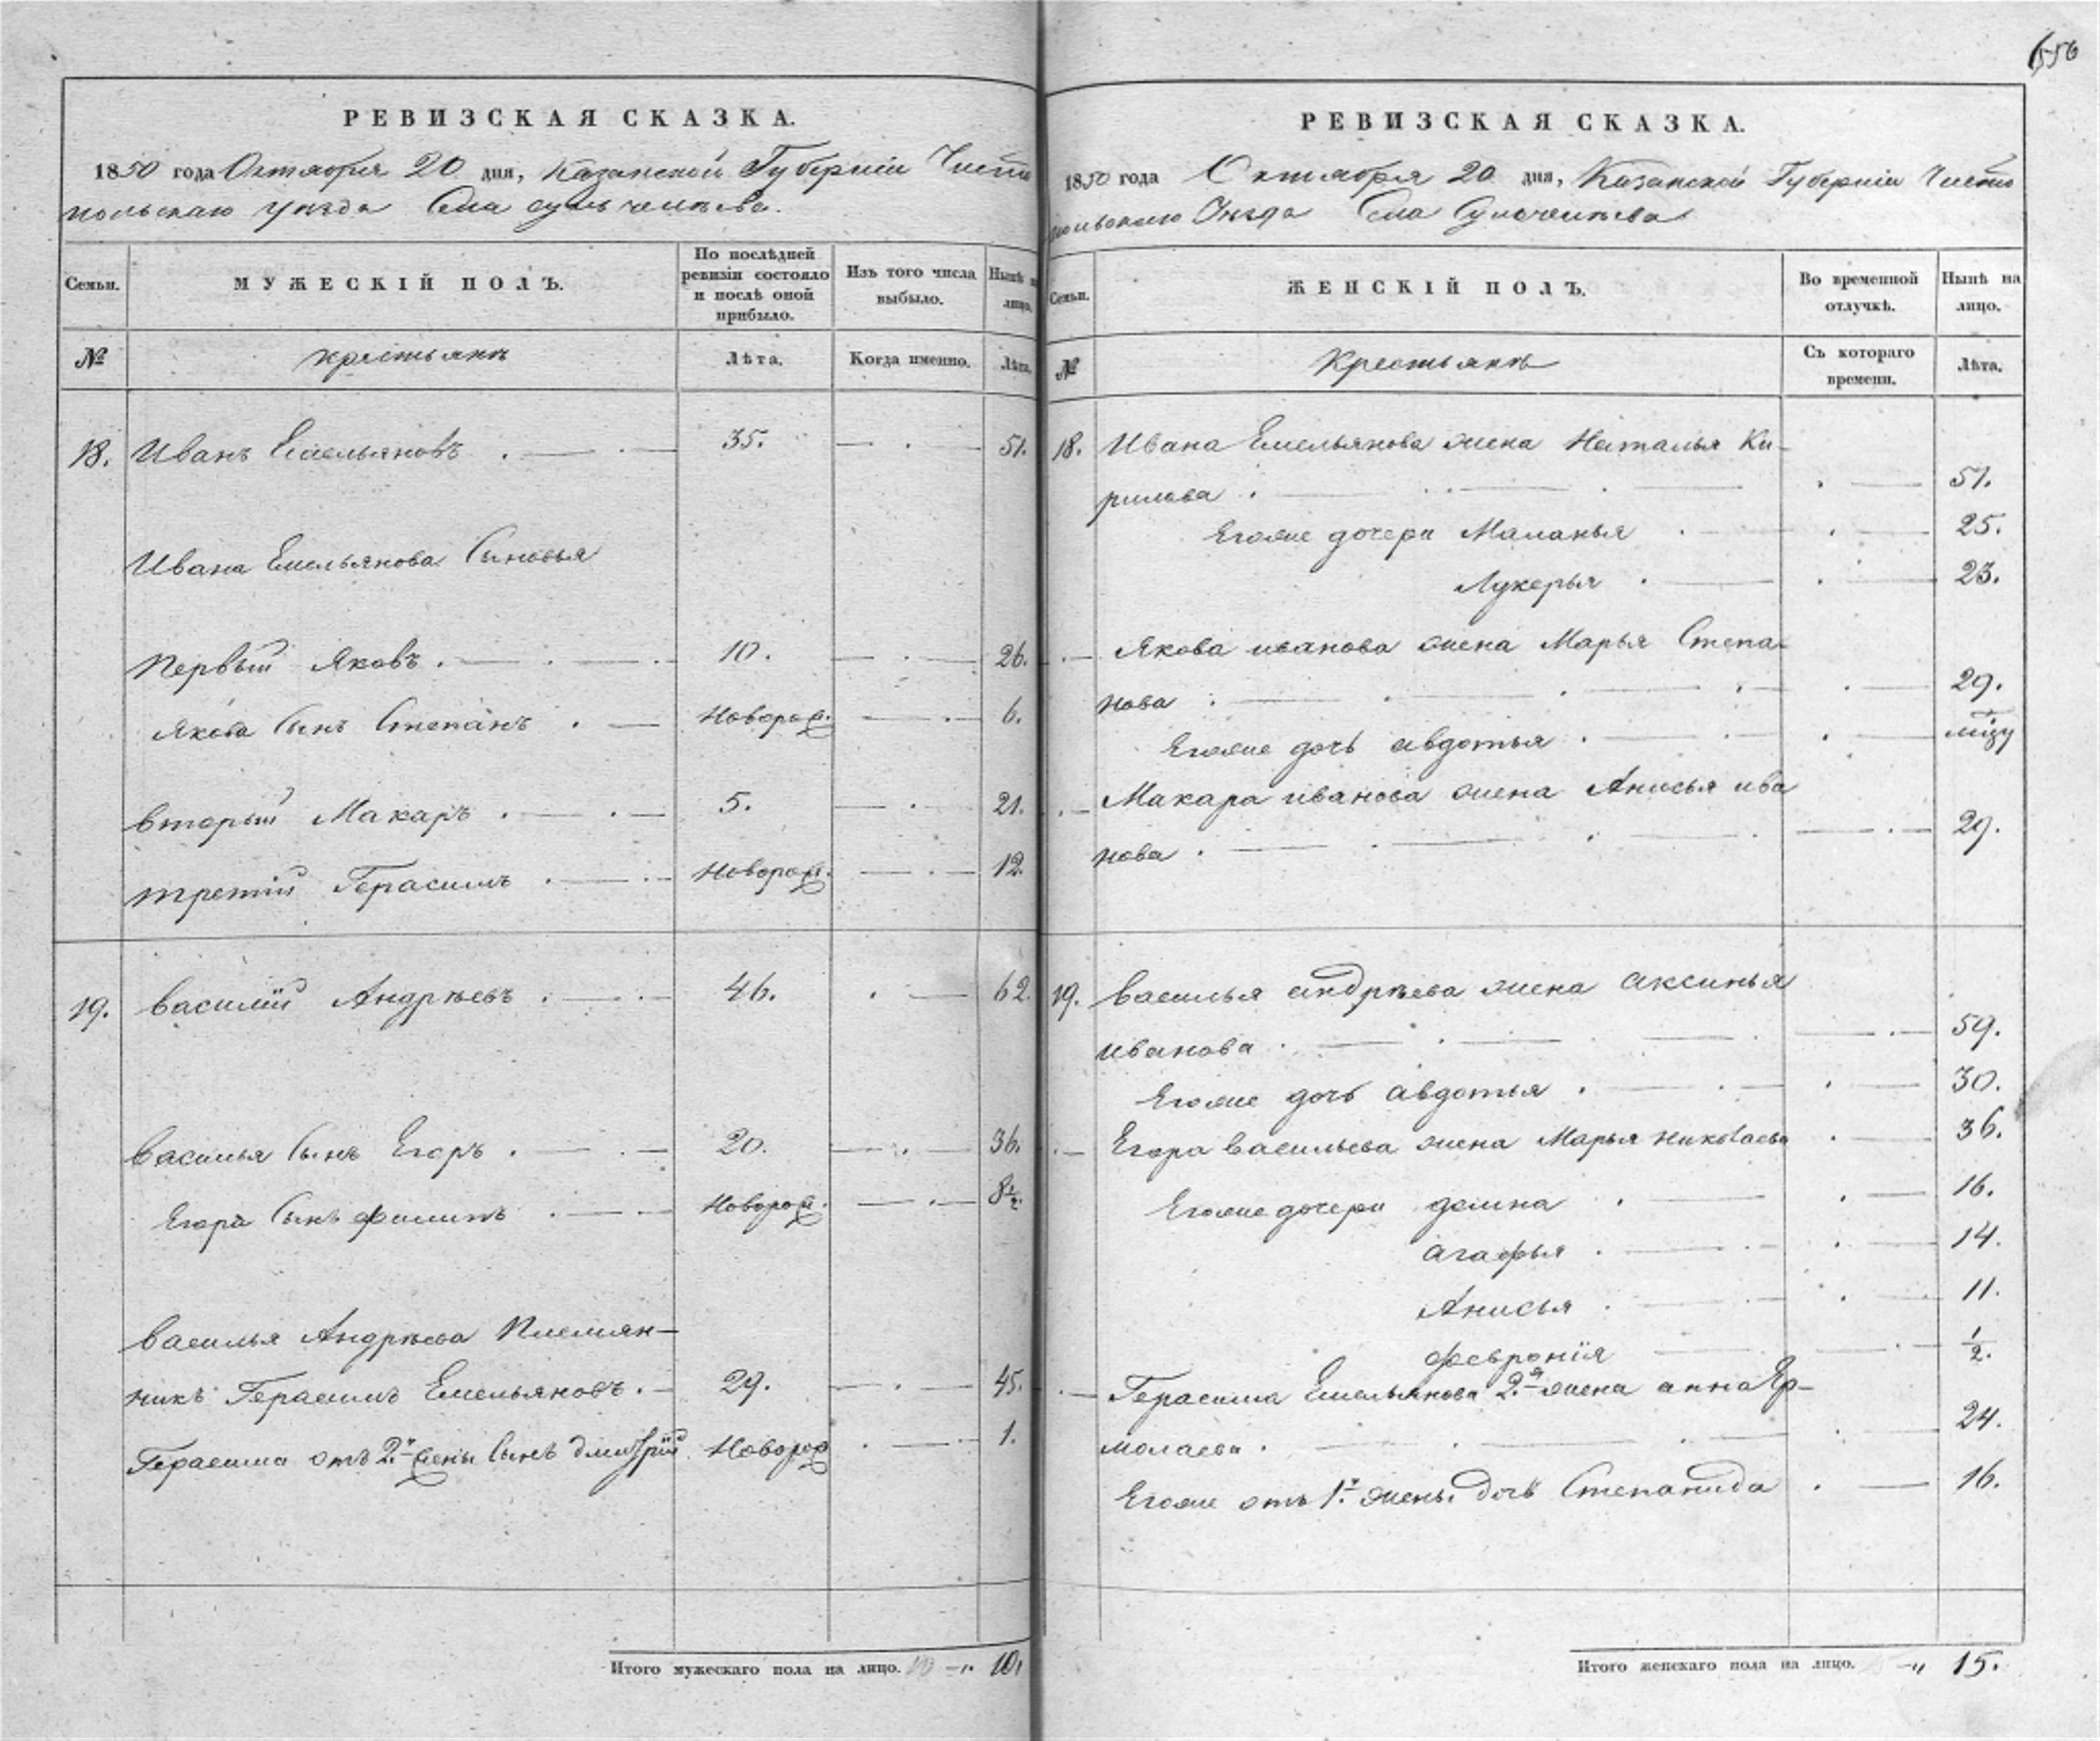 556
РЕВИЗСКАЯ СКАЗКА.
1850 года Октября 20 дня, Казанской Губернiи Чисто
польскаго уѣзда Села
Семьи.
МУЖЕСКІЙ ПОЛЪ.
По послѣдней ревизіи состояло и послѣ оной прибыло.
Изъ того числа выбыло.
Нынѣ на лицо.
№
крестьянъ
Лѣта.
Когда именно.
Лѣта.
18. Иванъ Емельяновъ . 35. 51.
Ивана Емельянова Сыновья
Первый Яковъ . 10. 26.
Якова Сынъ Степанъ . Новорож. 6.
Вторый Макаръ . 5. 21.
третiй Герасимъ . Новорож. 12.
19. Василiй Андрѣевъ . 46. 62.
Василья Сынъ Егоръ . 20. 36.
Егора Сынъ Филипъ . Новорож. 8 1/2.
Василья Андрѣева Племян-
никъ Герасимъ Емельяновъ . 29. 45.
Герасима отъ 2й жены Сынъ дмитрiй Новорож 1.
Итого мужескаго пола на лицо. 10 10.
РЕВИЗСКАЯ СКАЗКА.
1850 года Октября 20 дня, Казанской Губернiи Чисто
польскаго Уѣзда Села
Семьи.
ЖЕНСКІЙ ПОЛЪ.
Во временной отлучкѣ.
Нынѣ на лицо.
№
Крестьянъ
Съ котораго времени.
Лѣта.
18. Ивана Емельянова жена Наталья Ки-
рилова . 51.
Егоже дочери Маланья 25.
Лукерья . 23.
Якова иванова жена Марья Степа-
нова . 29.
Егоже дочь авдотья .
Макара иванова жена Анисья ива
нова . 29.
19. Василья андрѣева жена аксинья
иванова . 59.
Егоже дочь авдотья . 30.
Егора Васильева жена Марья николаева 36.
Егоже дочери домна 16.
агафья . 14.
Анисья . 11.
Февронiя 1/2.
Герасима Емельянова 2я жена анна Яр-
молаева . 24.
Егоже отъ 1й жены дочь Степанида 16.
Итого женскаго пола на лицо. 15.